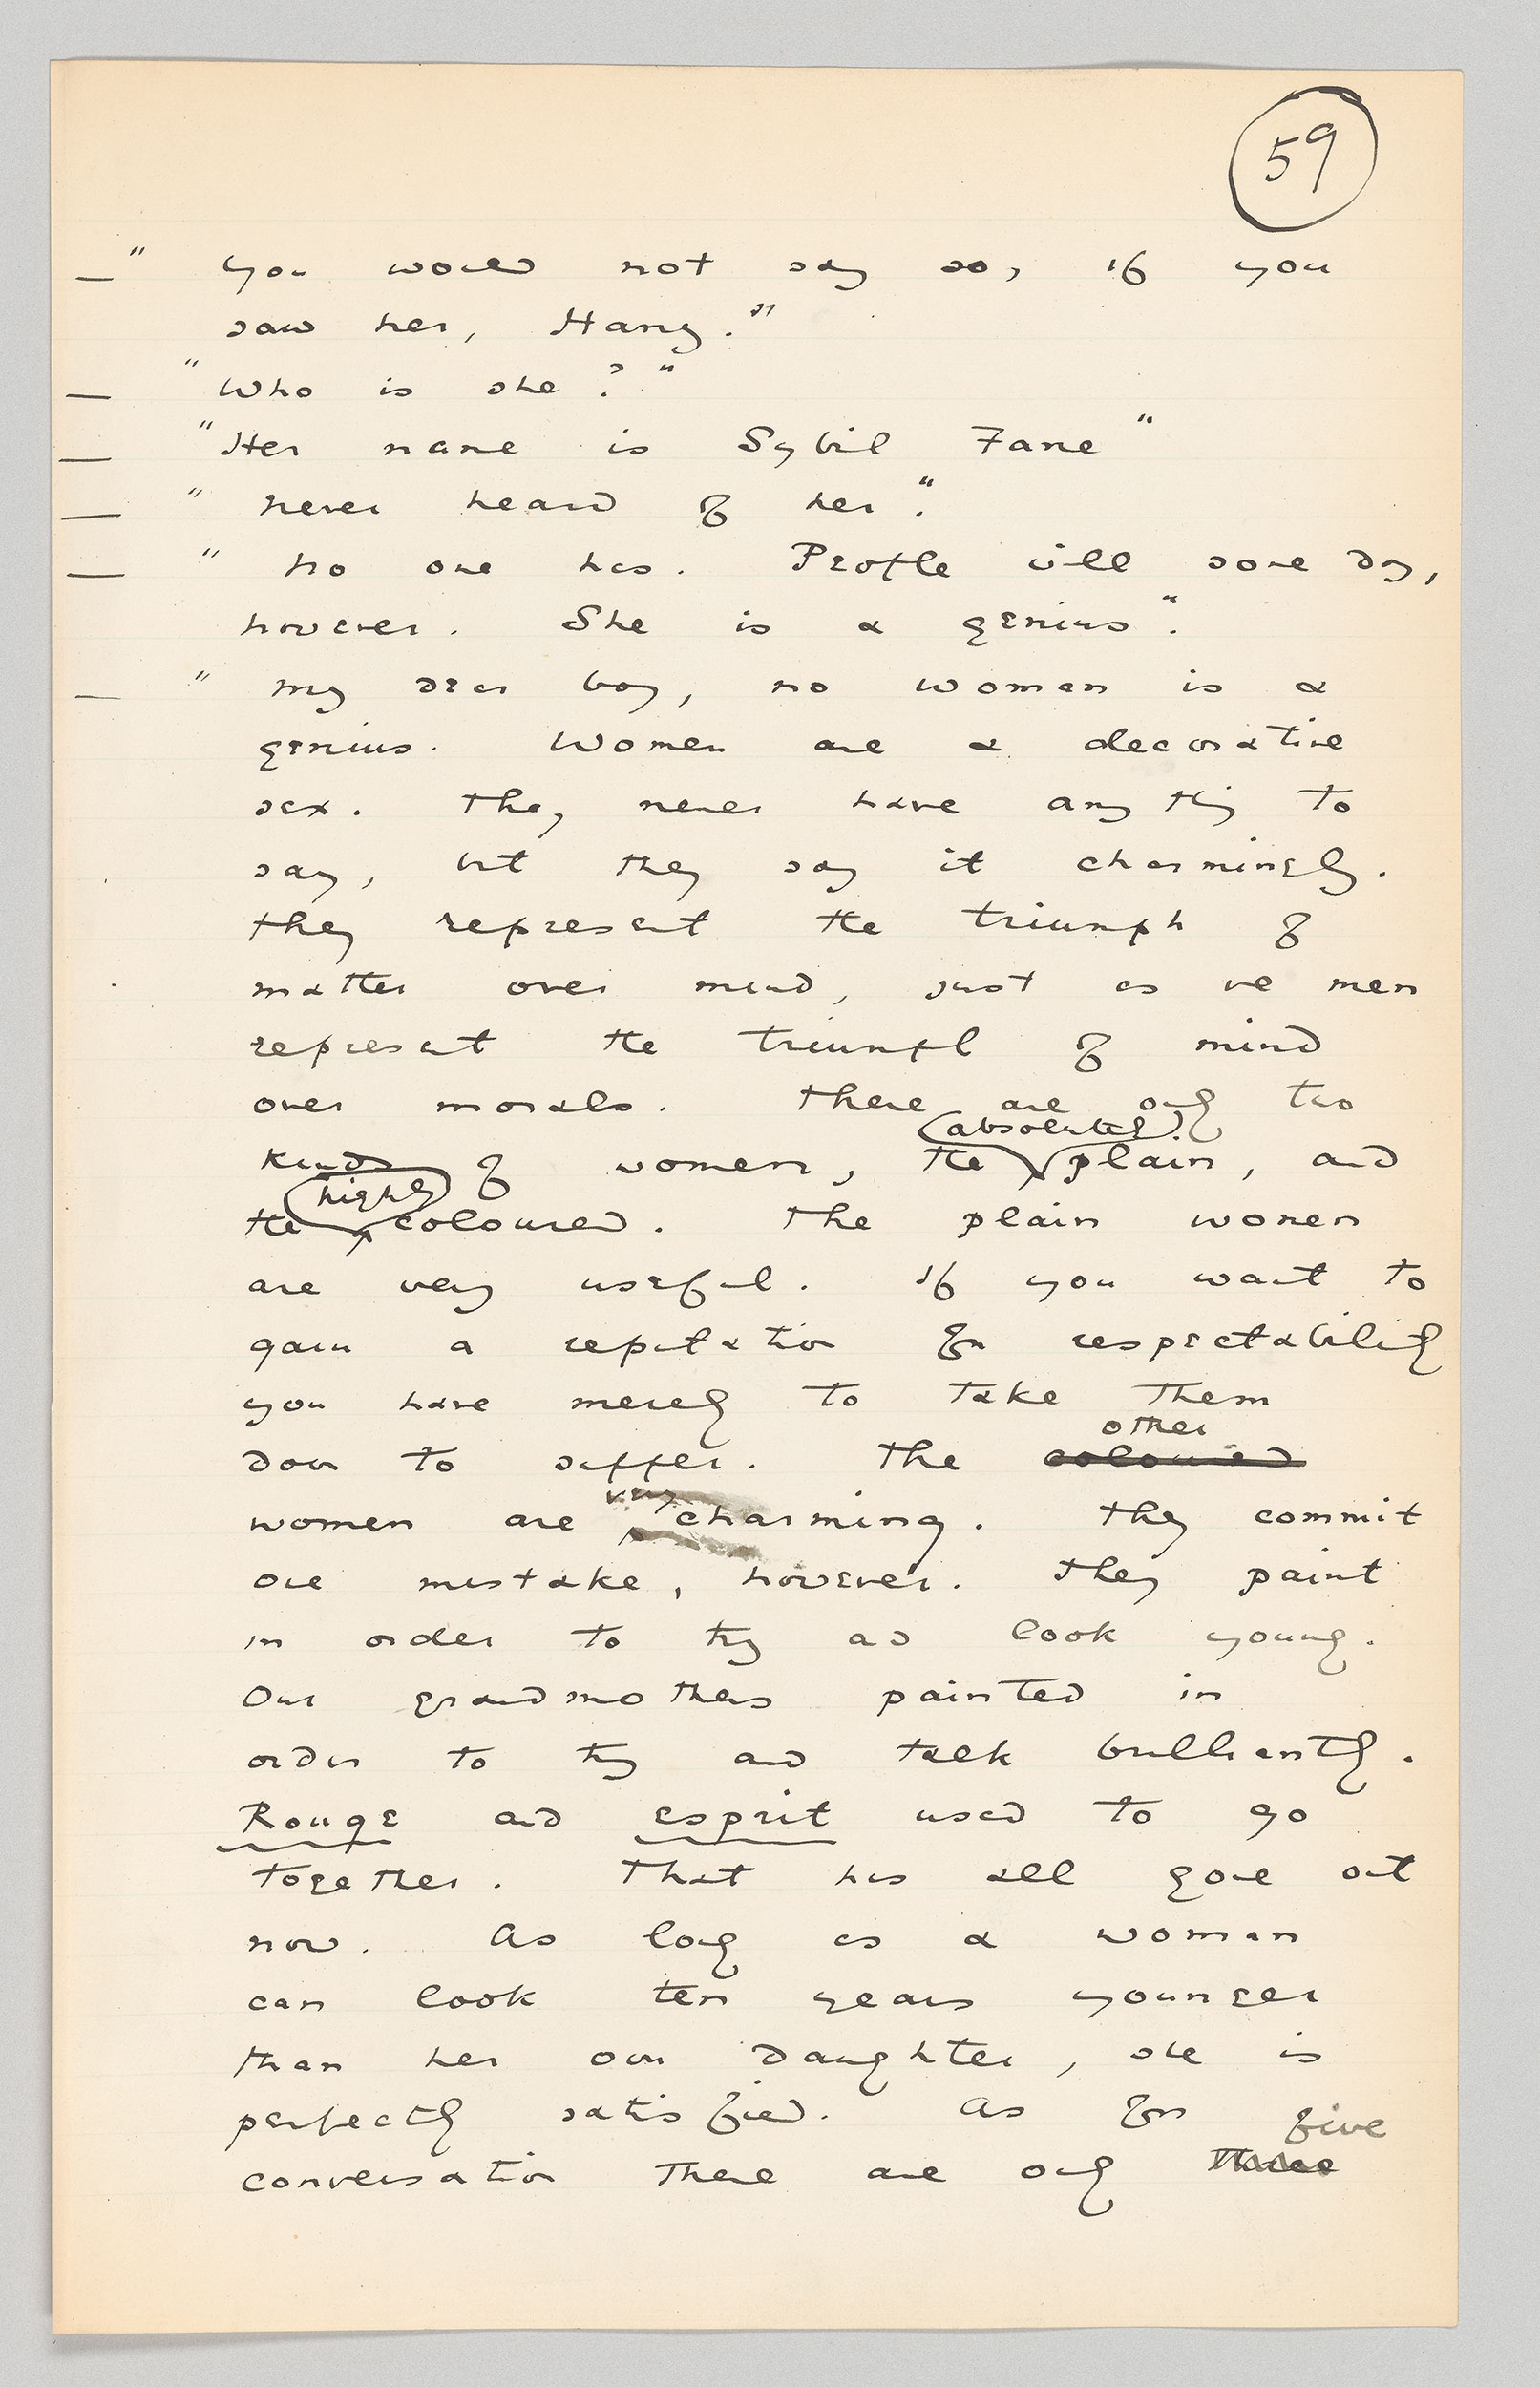 59
—" You would not say so, if you
saw her, Harry."
— "Who is she?"
— "Her name is Sybil Fane"
— "never heard of her."
— "No one has. People will some day,
however. She is a genius".
— "my dear boy, no woman is a
genius. Women are a decorative
sex. They never have anything to
say, but they say it charmingly.
They represent the triumph of
matter over mind, just as we men
represent the triumph of mind
over morals. There are only two
absolutely
kinds of women, the plain, and
highly
the coloured. The plain women
are very useful. If you want to
gain a reputation for respectability
you have merely to take them
other
down to supper. The coloured
very
women are charming. They commit
one mistake, however. They paint
in order to try and look young.
Our grandmothers painted in
order to try and talk brilliantly.
Rouge and esprit used to go
together. That has all gone out
now. As long as a woman
can look ten years younger
than her own daughter, she is
perfectly satisfied. As for
five
conversation there are only three